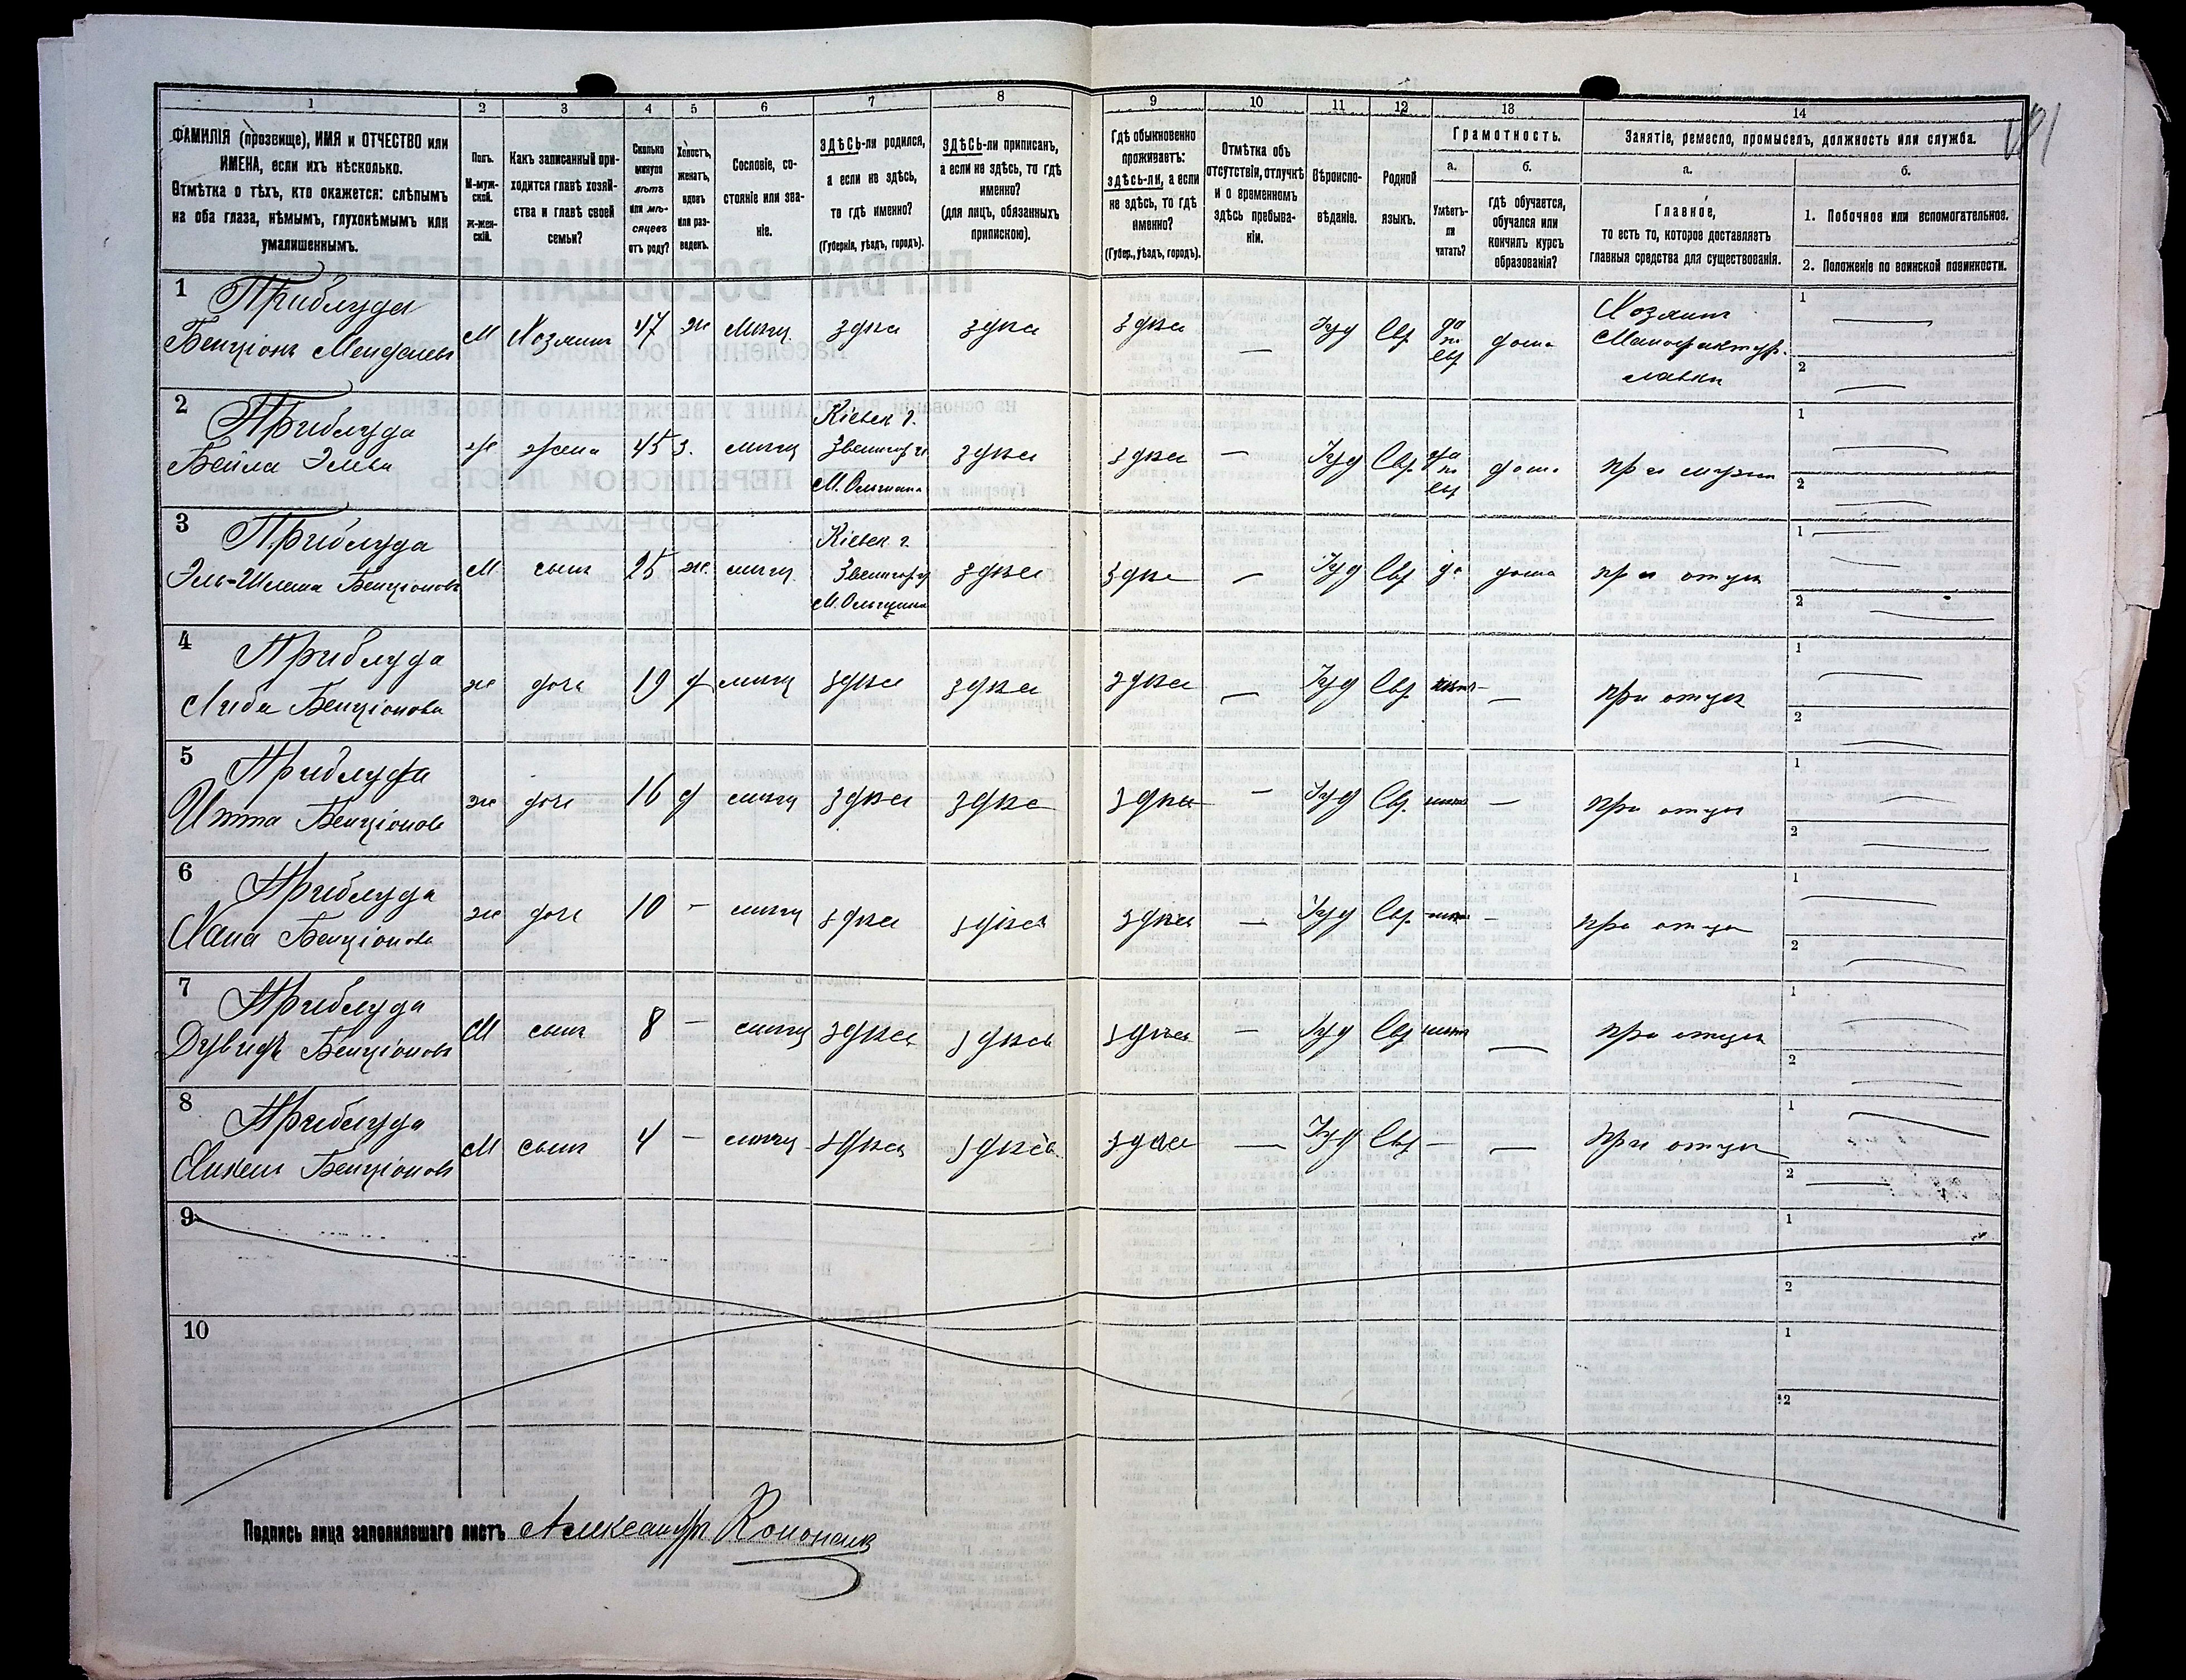 1 2 3 4 5 6 7 8 9 10 11 12 13 14
ФАМИЛІЯ (прозвище), ИМЯ и ОТЧЕСТВО или
ИМЕНА, если ихъ нѣсколько.
Отмѣтка о тѣхъ, кто окажется: слѣпымъ
на оба глаза, нѣмымъ, глухонѣмымъ или
умалишеннымъ.
Полъ.
М-муж-
ской.
Ж-жен-
скій.
Какъ записанный при-
ходится главѣ хозяй-
ства и главѣ своей
семьи?
Сколько
минуло
лѣтъ
или мѣ-
сяцевъ
отъ роду?
Холостъ,
женатъ,
вдовъ
или раз-
веденъ.
Сословіе, со-
стояніе или зва-
ніе.
ЗДѢСЬ-ли родился,
а если не здѣсь,
то гдѣ именно?
(Губернія, уѣздъ, городъ).
ЗДѢСЬ-ли приписанъ,
а если не здѣсь, то гдѣ
именно?
(для лицъ, обязанныхъ
припискою).
Гдѣ обыкновенно
проживаетъ:
здѣсь-ли, а если
не здѣсь, то гдѣ
именно?
(Губер., уѣздъ, городъ).
Отмѣтка объ
отсутствіи, отлучкѣ
и о временномъ
здѣсь пребыва-
ніи.
Вѣроиспо-
вѣданіе.
Родной
языкъ.
Грамотность.
а.
Умѣетъ-
ли
читать?
б.
гдѣ обучается,
обучался или
кончилъ курсъ
образованія?
Занятіе, ремесло, промыселъ, должность или служба.
а.
Главное,
то есть то, которое доставляетъ
главныя средства для существованія.
б.
1. Побочное или вспомогательное.
2. Положеніе по воинской повинности.
1 Приблуда
Бенціонъ Менделевъ М Хозяинъ 47 ж мѣщ здѣсь здѣсь здѣсь — Іуд Евр да по евр дома Хозяинъ
Мануфактур.
лавки
1 —
2 —
2 Приблуда
Бейла Элева ж жена 45 з. мѣщ Кіевск г.
Звенигор у.
М. Ольшана здѣсь здѣсь — Іуд Евр да по евр дома при мужѣ
1 —
2 —
3 Приблуда
Эль-Шлема Бенціоновъ М сынъ 25 ж. мѣщ Кіевск г
Звенигор у
М. Ольшана здѣсь здѣсь — Іуд Евр да дома при отцѣ
1 —
2 —
4 Приблуда
Либа Бенціонова ж дочь 19 д мѣщ здѣсь здѣсь здѣсь — Іуд Евр нѣтъ — при отцѣ
1
2 —
5 Приблуда
Итта Бенціонов ж дочь 16 д мѣщ здѣсь здѣсь здѣсь — Іуд Евр. нѣтъ — при отцѣ
1 —
2 —
6 Приблуда
Хана Бенціонова ж дочь 10 — мѣщ здѣсь здѣсь здѣсь — Іуд Евр. нѣтъ — при отцѣ
1 —
2 —
7 Приблуда
Дувидъ Бенціоновъ М сынъ 8 — мѣщ здѣсь здѣсь здѣсь — Іуд Евр нѣтъ — при отцѣ
1 —
2 —
8 Приблуда
Бенціоновъ М сынъ 4 — мѣщ здѣсь здѣсь здѣсь — Іуд Евр — — при отцѣ
1 —
2 —
9
1
2
10
1
2
Подпись лица заполнявшаго листъ Александръ